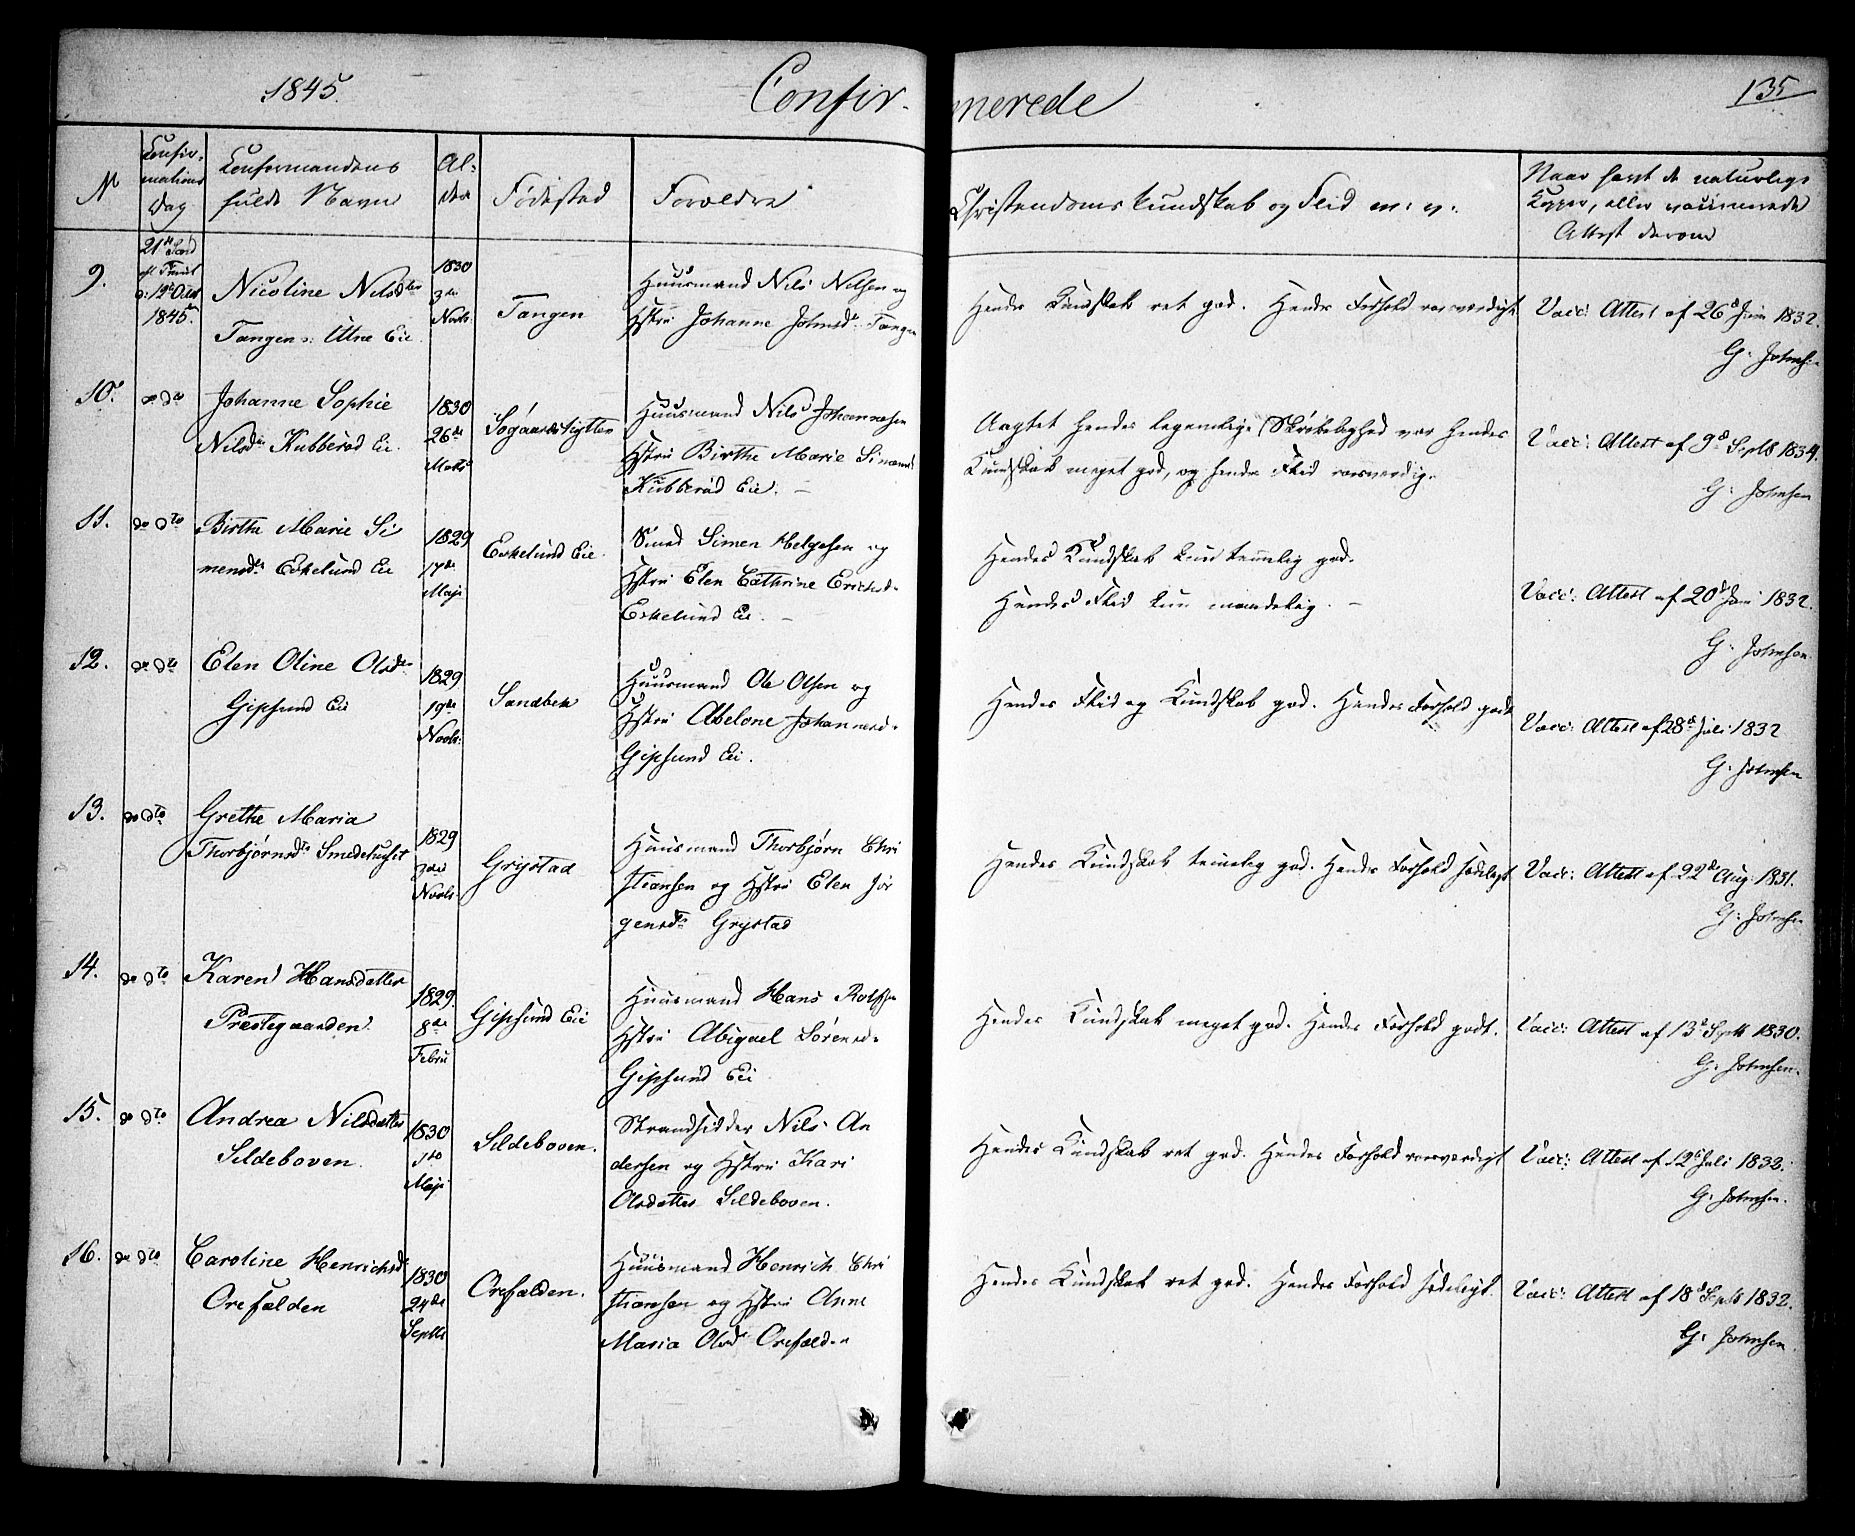 1845.
Confir-
merede
135
N
Confir-
mations
Dag
Confirmandens
fulde Navn
Al-
der
Fødested
Forældre
Christendomskundskab og Flid m: v:
Naar havt de naturlige
Kopper, eller vaccinerede
Attest derom
9.
21de Sønd
eft Trinit
o: 12te Octbr
1845.
Nicoline Nilsdtr
Tangen Eie
1830
3die
Novb:
Tangen
Huusmand Nils Nilsen og
Hstru Johanne Johnsd: Tangen
Hendes Kundskab ret god. Hendes Forhold rosværdigt
Vacc: Attest af 26d Juni 1832.
G: Johnsen
10.
do dto
Johanne Sophie
Nilsdr Kubberød Eie.
1830
26de
Marts
Huusmand Nils Johannesen
Hstru Birthe Marie Simensd
Kubberød Eie. –
Uagtet hendes legemlige Skrøbelighed var hendes
Kundskab meget god, og hendes Flid rosværdig.
Vacc: Attest af 9d Septb 1834.
G: Johnsen
11.
do dto
Birthe Marie Si
mensdr Eskelund Eie
1829
17de
Maji
Eskelund Eie.
Smed Simen Helgesen og
Hstru Elen Cathrine Erichsd-
Eskelund Eie. –
Hendes Kundskab kun temmelig god.
Hendes Flid kun maadelig. –
Vacc: Attest af 20d Juni 1832.
G: Johnsen
12.
do dto
Elen Oline Olsdtr
Gipsund Eie
1829
19de
Novb:
Sandbek
Huusmand Ole Olsen og
Hstru Abelone Johannesd-
Gipsund Eie.
Hendes Flid og Kundskab god. Hendes Forhold godt
Vacc: Attest af 28d Juli 1832
G: Johnsen
13.
do dto
Grethe Maria
Thorbjørnsdtr Smedehuset
1829
3die
Novb:
Grystad
Huusmand Thorbjørn Chri
stiansen og Hstru Elen Jør
gensdr Grystad
Hendes Kundskab temelig god. Hendes Forhold sædeligt
Vacc: Attest af 22d Aug: 1831.
G: Johnsen
14.
do dto
Karen Hansdatter
Prestegaarden.
1829.
8de
Febru
Gipsund Eie
Huusmand Hans Rolfsen
Hstru Abigael Sørensd-
Gipsund Eie
Hendes Kundskab meget god. Hendes Forhold godt.
Vacc: Attest af 13d Septb 1830.
G: Johnsen.
15.
do dto
Andrea Nilsdatter
Sildeboven.
1830
1ste
Maji
Sildeboven.
Strandsidder Nils An
dersen og Hstru Kari
Olsdatter Sildeboven.
Hendes Kundskab ret god. Hendes Forhold rosværdigt
Vacc: Attest af 12d Juli 1832.
G: Johnsen.
16.
do dto
Caroline Henrichsdr
Orefælden
1830
24de
Septbr
Orefælden.
Huusmand Henrich Chri
stiansen og Hstru Anne
Maria Olsdr Orefælden
Hendes Kundskab ret god. Hendes Forhold sædeligt.
Vacc: Attest af 18d Septb 1832.
G: Johnsen.